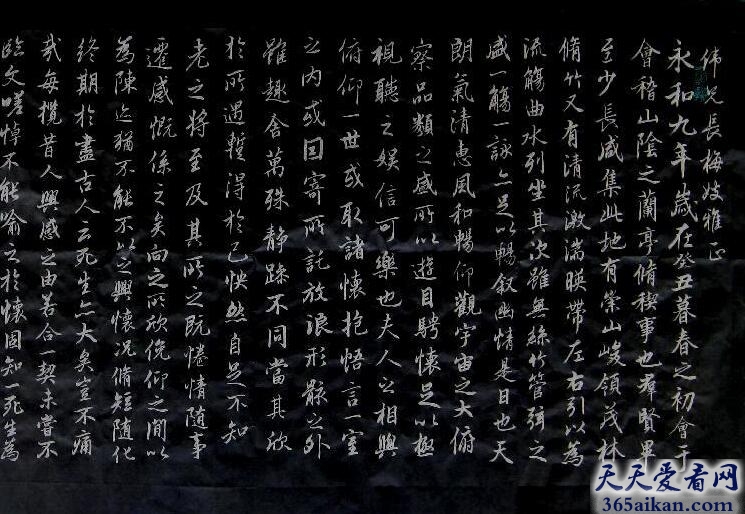 兄長梅雅正
永和九年歲在癸丑暮春之初會于
會稽山陰之蘭亭脩稧事也羣賢畢
至少長咸集此地有崇山峻領茂林
脩竹又有清流激湍暎帶左右引以為
流觴曲水列坐其次雖無絲竹管弦之
盛一觴一詠亦足以暢敘幽情是日也天
朗氣清惠風和暢仰觀宇宙之大俯
察品類之盛所以遊目騁懷足以極
視聽之娛信可樂也夫人之相與
俯仰一世或取諸懷抱悟言一室
之內或因寄所託放浪形骸之外
雖趣舍萬殊靜躁不同當其欣
於所遇蹔得於己怏然自足不知
老之將至及其所之既惓情隨事
遷感慨係之矣向之所欣俛仰之閒以
為陳迹猶不能不以之興懷況脩短隨化
終期於盡古人云死生亦大矣豈不痛
哉每攬昔人興感之由若合一契未嘗不
臨文嗟悼不能喻之於懷固知一死生為
天天爱看网
365aikan.com